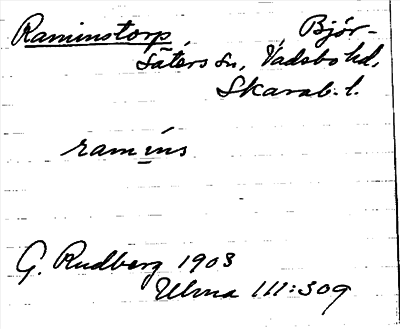 Raminstorp, Björ-
säters sn, Vadsbo hd,
Skarab. l.
ramins
G. Rudberg 1903
Ulma 111:309